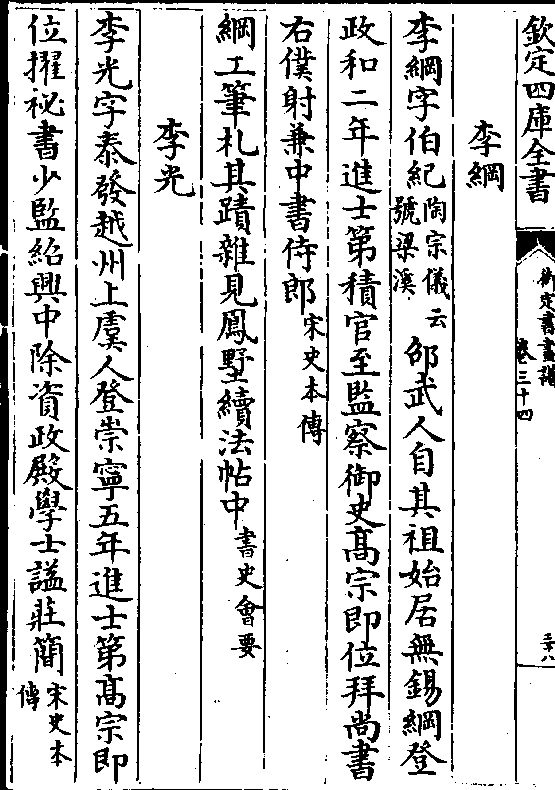 欽定四庫全書
御定書畫譜
卷三十四
三十八
李綱
李綱字伯紀陶宗儀云號梁溪邵武人自其祖始居無錫綱登
政和二年進士第積官至監察御史髙宗即位拜尚書
右僕射兼中書侍郎宋史本傳
綱工筆札其蹟雜見鳳墅續法帖中書史會要
李光
李光字泰發越州上虞人登崇寧五年進士第髙宗即
位擢祕書少監紹興中除資政殿學士謚莊簡宋史本傳